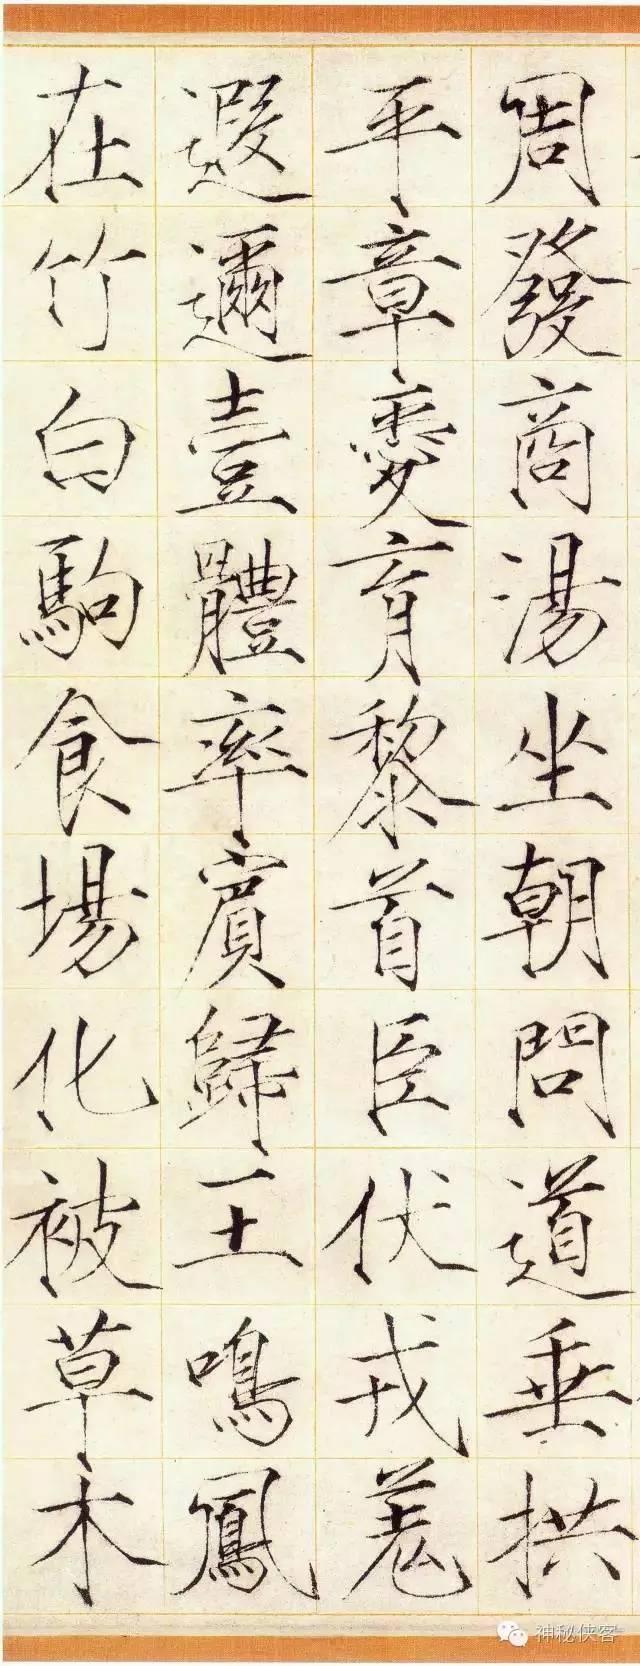 周發商湯坐朝問道垂拱
平章愛育黎首臣伏戎羌
遐邇壹體率賓歸王鳴鳳
在竹白駒食場化被草木
神秘侠客